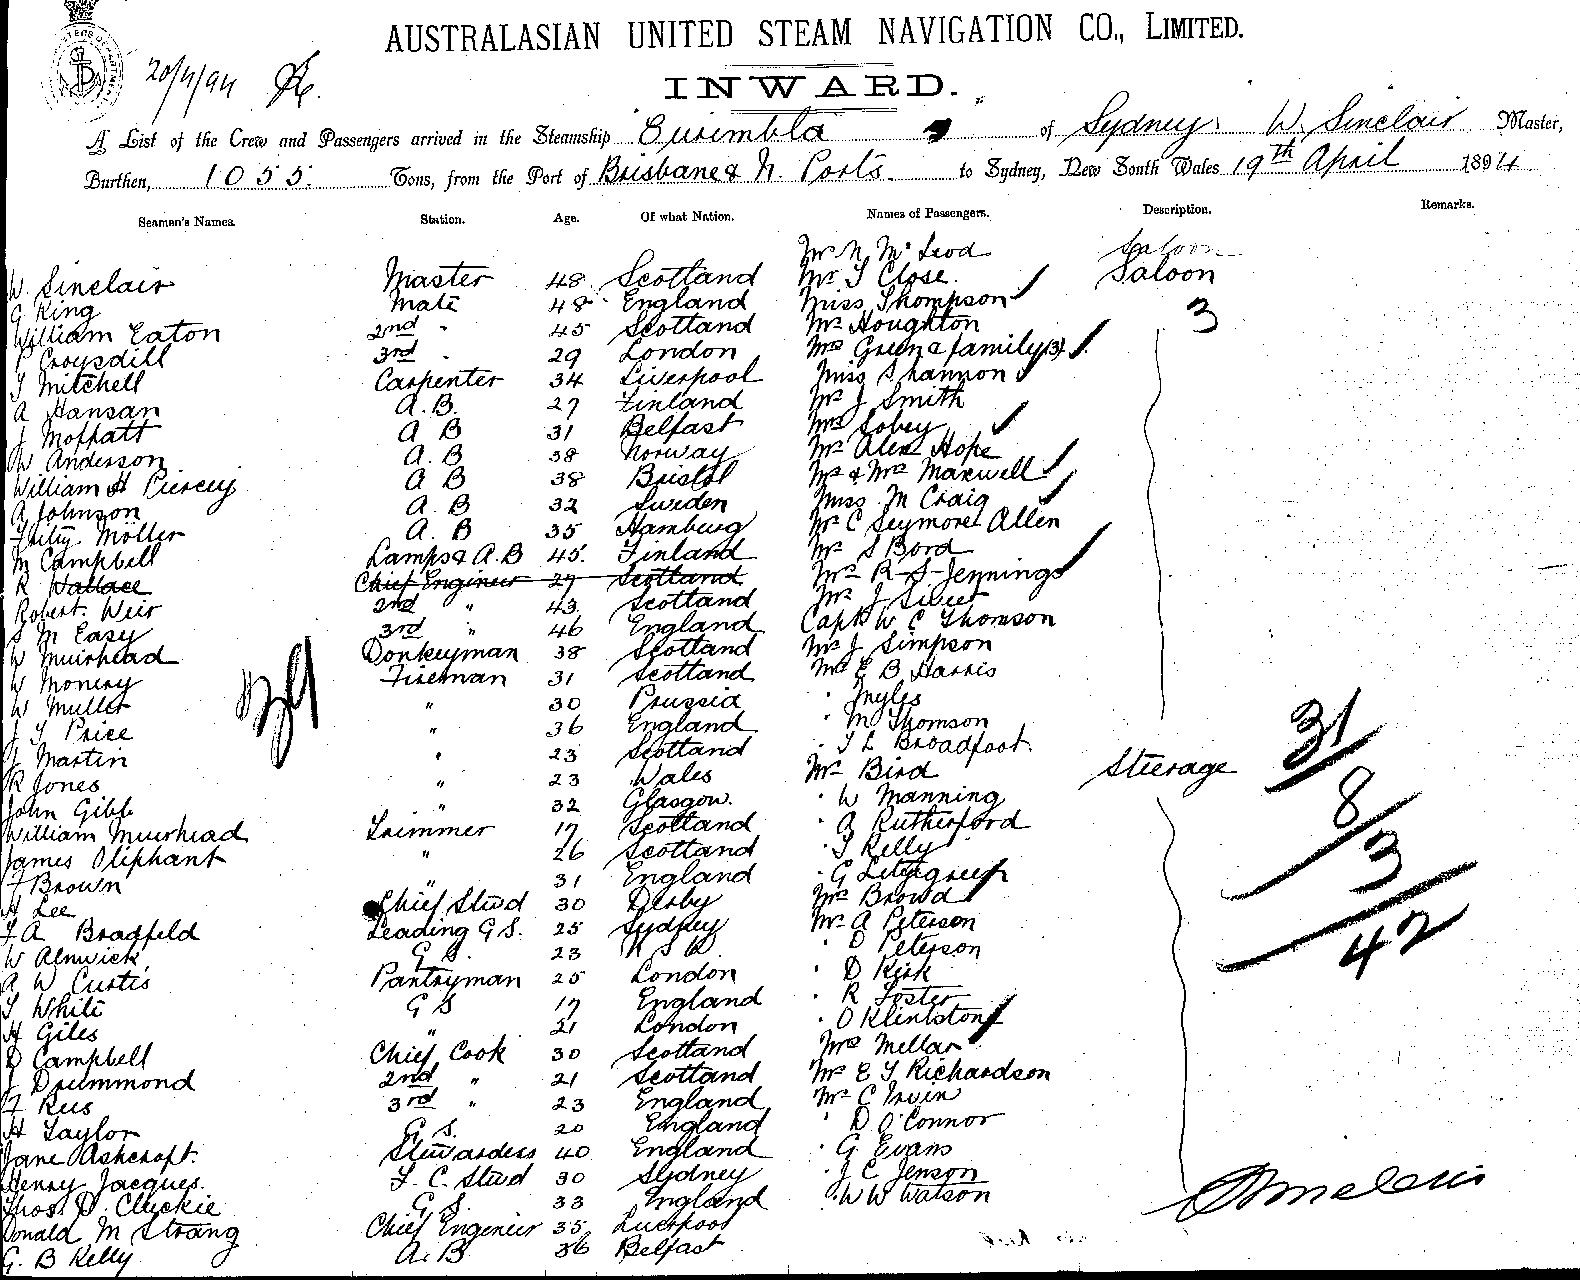 AUSTRALASIAN UNITED STEAM NAVIGATION CO., LIMITED.
20/4/94
INWARD.
A List of the Crew and Passengers arrived in the Steamship Eurimbla of Sydney W. Sinclair Master,
Burthen, 1055. Tons, from the Port of Brisbane & N. Ports. to Sydney, New South Wales 19th April 1894
Seamen's Names. Station. Age. Of what Nation. Names of Passengers. Description. Remarks.
Mr N. McLeod Saloon
W. Sinclair Master 48 Scotland Mr T Close. Saloon
G King Mate 48 England Miss Thompson
William Eaton 2nd " 45 Scotland Mr Houghton 3
P Croysdill 3rd " 29 London Mrs Green & family (3)
T Mitchell Carpenter 34 Liverpool Miss Shannon
A Hansan A.B. 27 Finland Mr J Smith
J Moffatt A B 31 Belfast Mrs Sobey
W Anderson A.B 38 Norway Mr Alex Hope
William H Piercey A B 38 Bristol Mr & Mrs Maxwell
A Johnson A.B 32 Sweden Miss M Craig
Möller A.B 35 Hamburg Mr C Seymore Allen
M Campbell Lamps & A.B 45. Finland Mr S Bord
R Wallace Chief Engineer 27 Scotland Mrs R-S-Jennings
Robert Weir 2nd " 43 Scotland Mr J Sweet
S M Easy 3rd " 46 England Capt W C Thomson
W Muirhead Donkeyman 38 Scotland Mr J Simpson
W Moneny Fireman 31 Scotland Mr E B Harris
W Muller " 30 Prussia " Ingles
J T Price " 36 England " M Thomson
J Martin " 23 Scotland " T L Broadfoot.
R Jones " 23 Wales Mr Bird Steerage 31
John Gibb " 32 Glasgow. " W Manning 8
William Muirhead Trimmer 17 Scotland " A Rutherford
James Oliphant " 26 Scotland " T Kelly 3
F Brown " 31 England " G
H Lee Chief Stwd 30 Derby Mrs Browd
F A Bradfeld Leading G S. 25 Sydney Mr A Peterson
W Alnwick G S. 23 N S W " D Peterson 42
A W Curtis Pantryman 25 London " D Kirk
T White G S 17 England " R Foster
H Giles " 21 London " O Klintstom
D Campbell Chief Cook 30 Scotland Mrs Mellar
J Drummond 2nd " 21 Scotland Mr E T Richardson
F Rus 3rd " 23 England Mr C Irvin
H Taylor G S. 20 England " D O'Connor
Jane Ashcroft. Stewardess 40 England " G Evans
Henry Jacques. F. C. Stwd 30 Sydney " J C Jenson
Thos. D. Cluckie G S. 33 England " W W Watson
Donald M Strang Chief Engenier 35 Liverpool
G. B Kelly A. B 36 Belfast